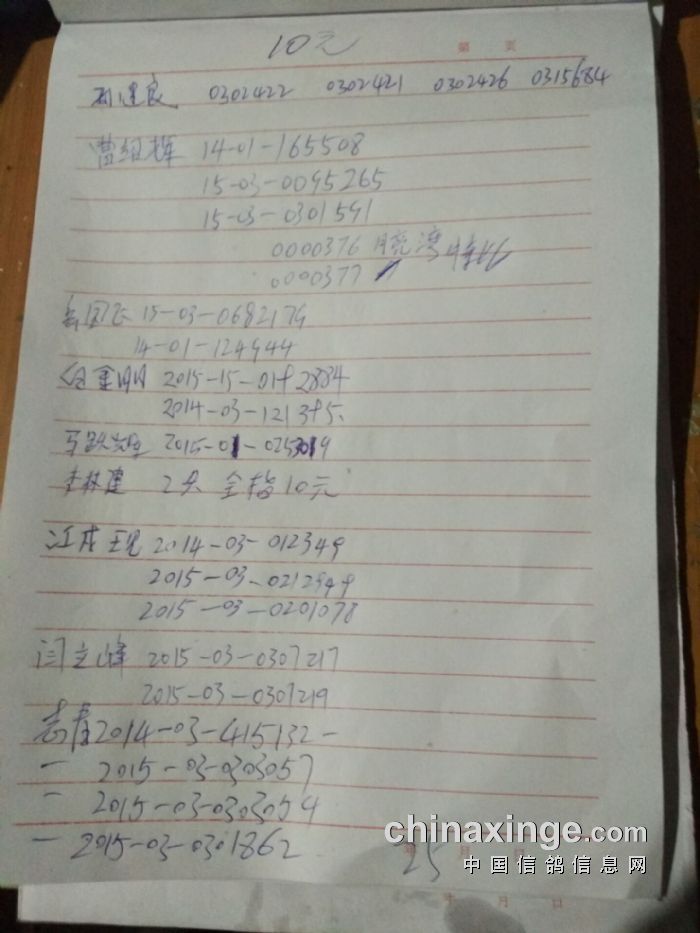 10元
第 页
建良 0302422 0302421 0302426 0315684
曹绍辉 14-01-165508
15-03-0095265
15-03-0301591
0000376 月亮湾
0000377
15-03-0682179
14-01-124944
金明 2015-15-
2014-03-
2015-01-
李林建 2只 全指10元
江成 2014-03-012349
2015-03-0212949
2015-03-0201078
闫立峰 2015-03-0307217
2015-03-0307219
志春 2014-03-415132-
一 2015-03-0303057
一 2015-03-0303054
一 2015-03-0301862
25 月 日
chinaxinge.com
中国信鸽信息网
年 月 日